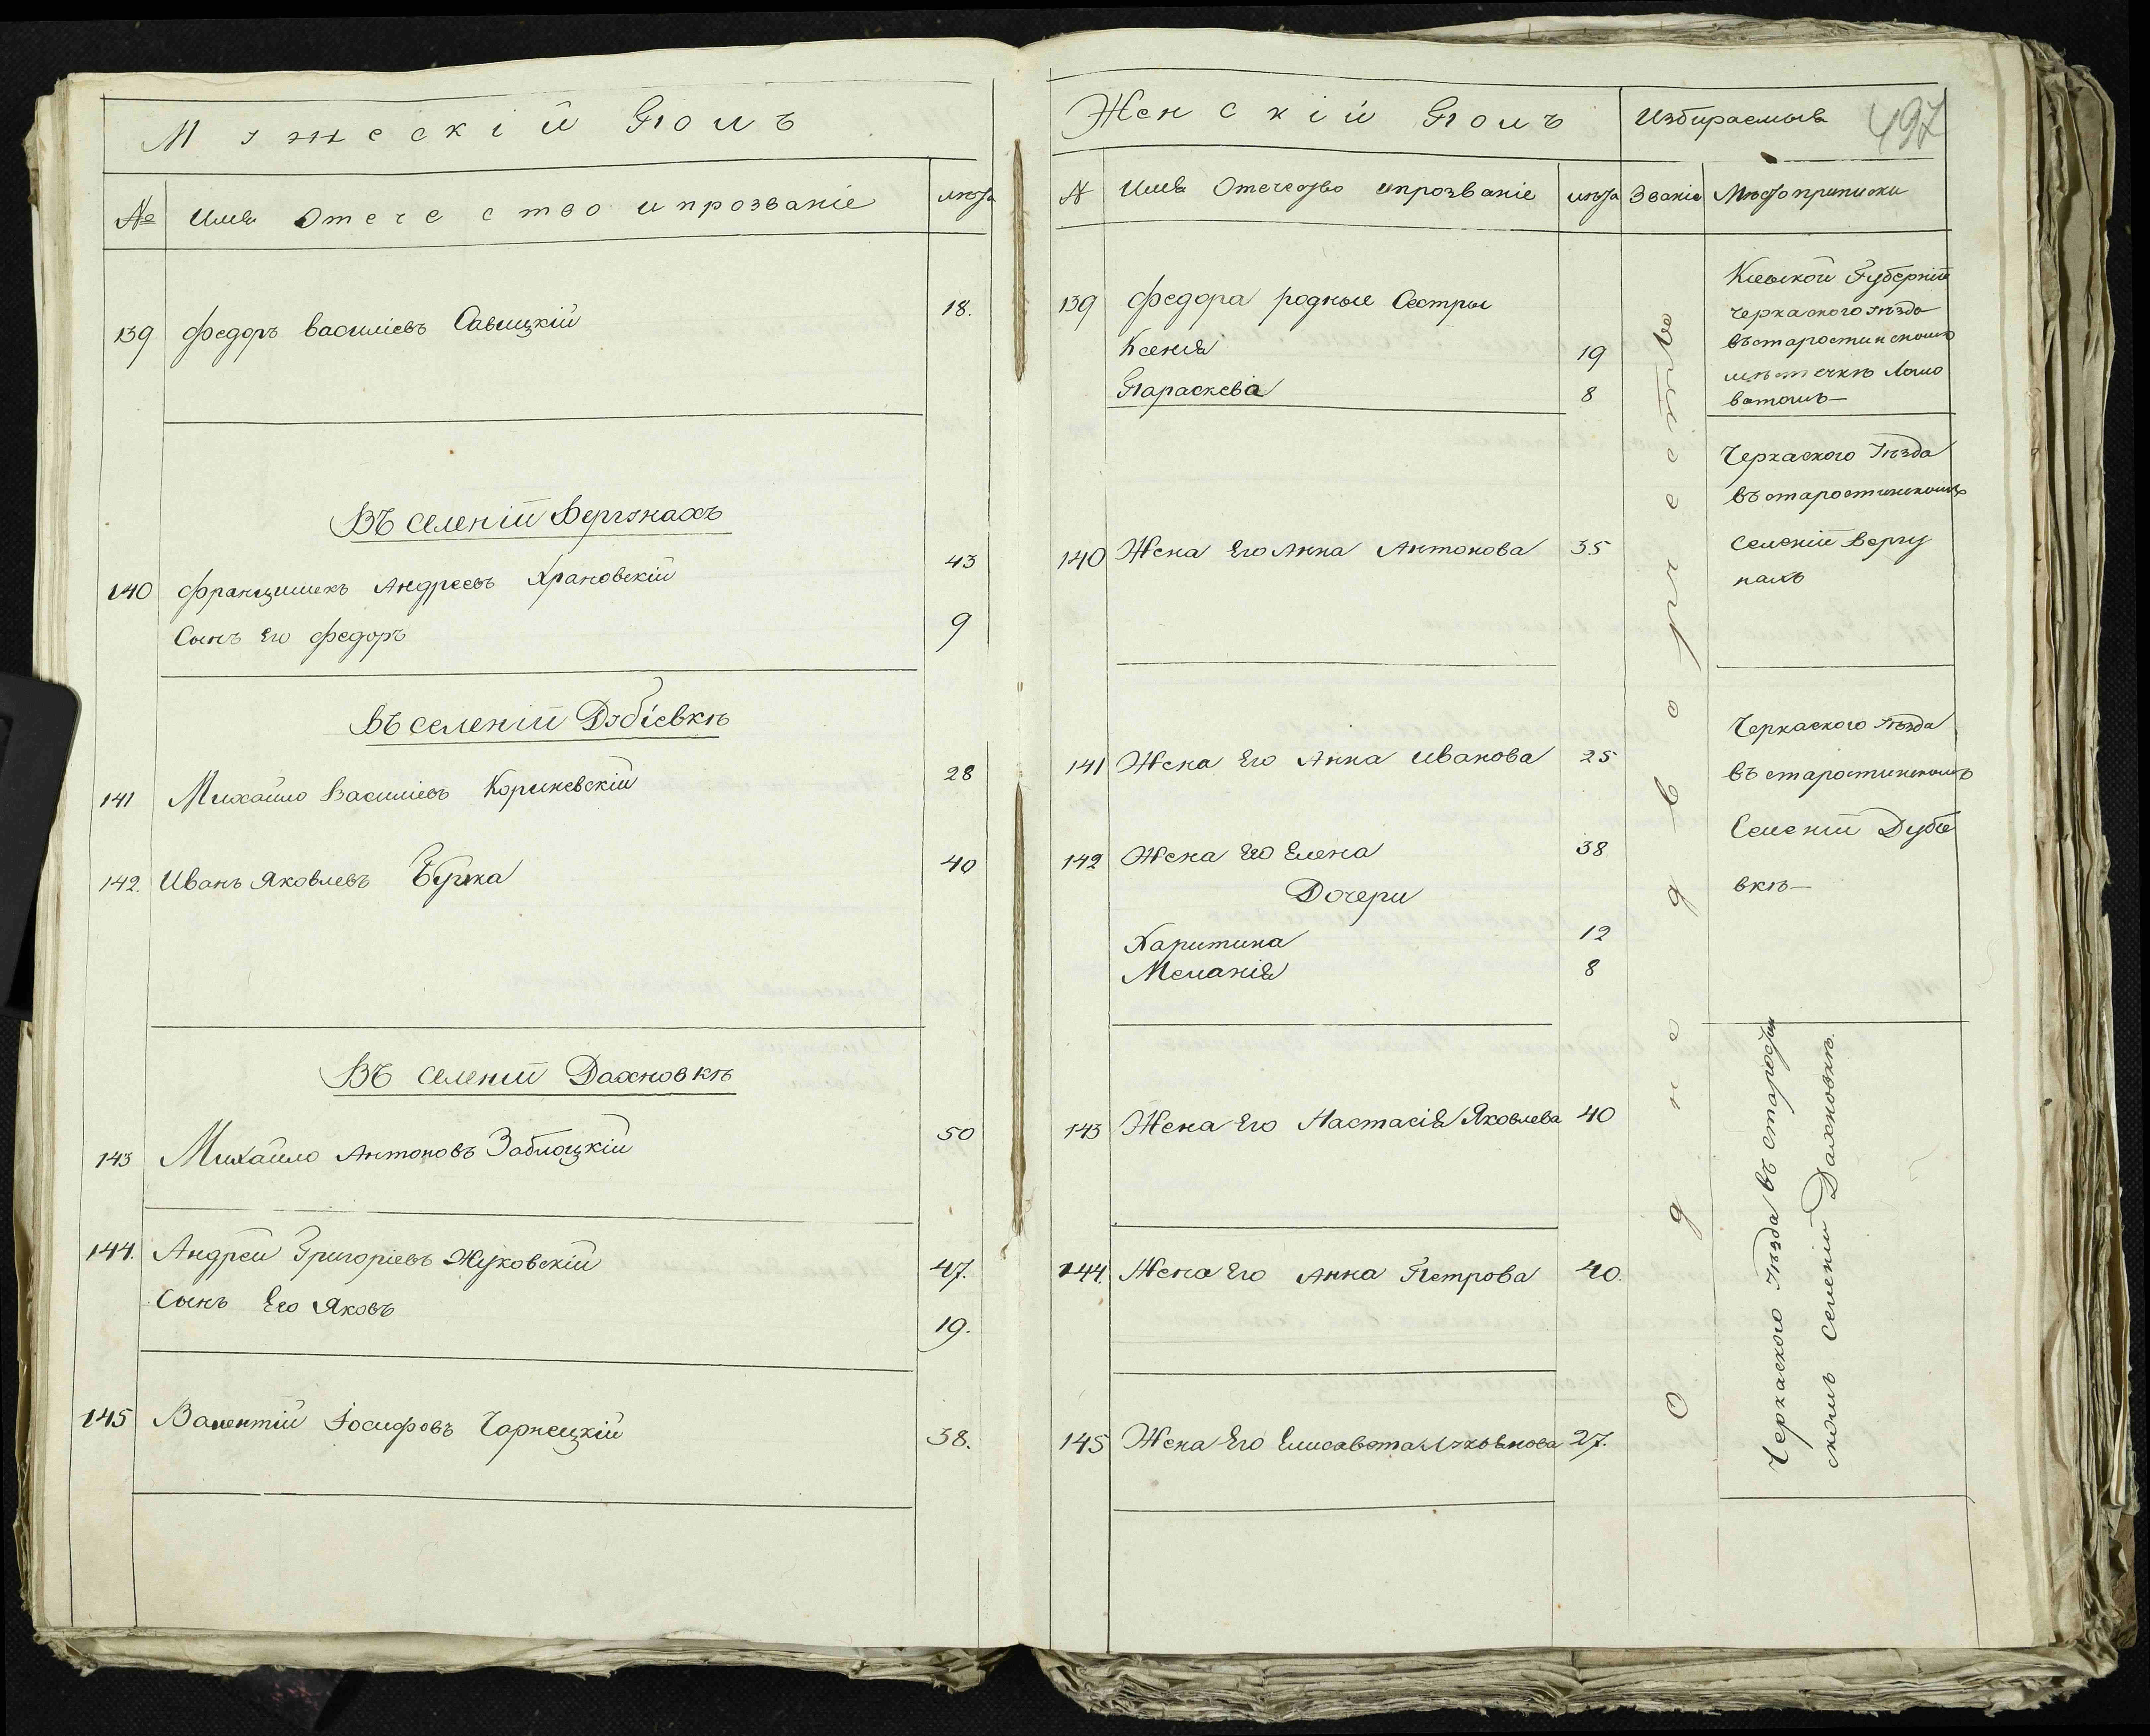 Мужескій Полъ
№ Имя Отечество и прозваніе лѣта
139 Федоръ Василіевъ Савицкій 18.
Въ селеніи Вергунахъ
140 Францишекъ Андреевъ Храновскій 43
Сынъ его Федоръ 9
Въ селеніи Дубіевкѣ
141 Михайло Василіевъ Кориневскій 28
142. Иванъ Яковлевъ 40
Въ селеніи Дахновкѣ
143 Михайло Антоновъ Заблоцкій 50
144. Андрей Григоріевъ Жуковскій 47.
Сынъ Его Яковъ 19.
145 Валентій Іосифовъ Чарнецкій 38.
Женскій Полъ
Избираемыя
497
№ Имя Отечество и прозваніе лѣта Званіе Мѣсто приписки
139 Федора родные Сестры
Ксенія 19
Параскева 8
140 Жена Его Анна Антонова 35
141 Жена Его Анна Иванова 25
142 Жена Его Елена 38
Дочери
Харитина 12
Меланія 8
143 Жена Его Настасія Яковлева 40
144. Жена Его Анна Петрова 40.
145 Жена Его Елисавета 27.
Однодворчество
Кіевской Губерніи
Черкаского уѣзда
въ старостинскомъ
мѣстечкѣ Ломо
ватомъ—
Черкаского Уѣзда
въ старостинскомъ
селеніи Вергу
нахъ
Черкаского Уѣзда
въ старостинскомъ
Селеніи Дубіе
вкѣ—
Черкаского Уѣзда въ старостин
скомъ Селеніи Дахновкѣ.